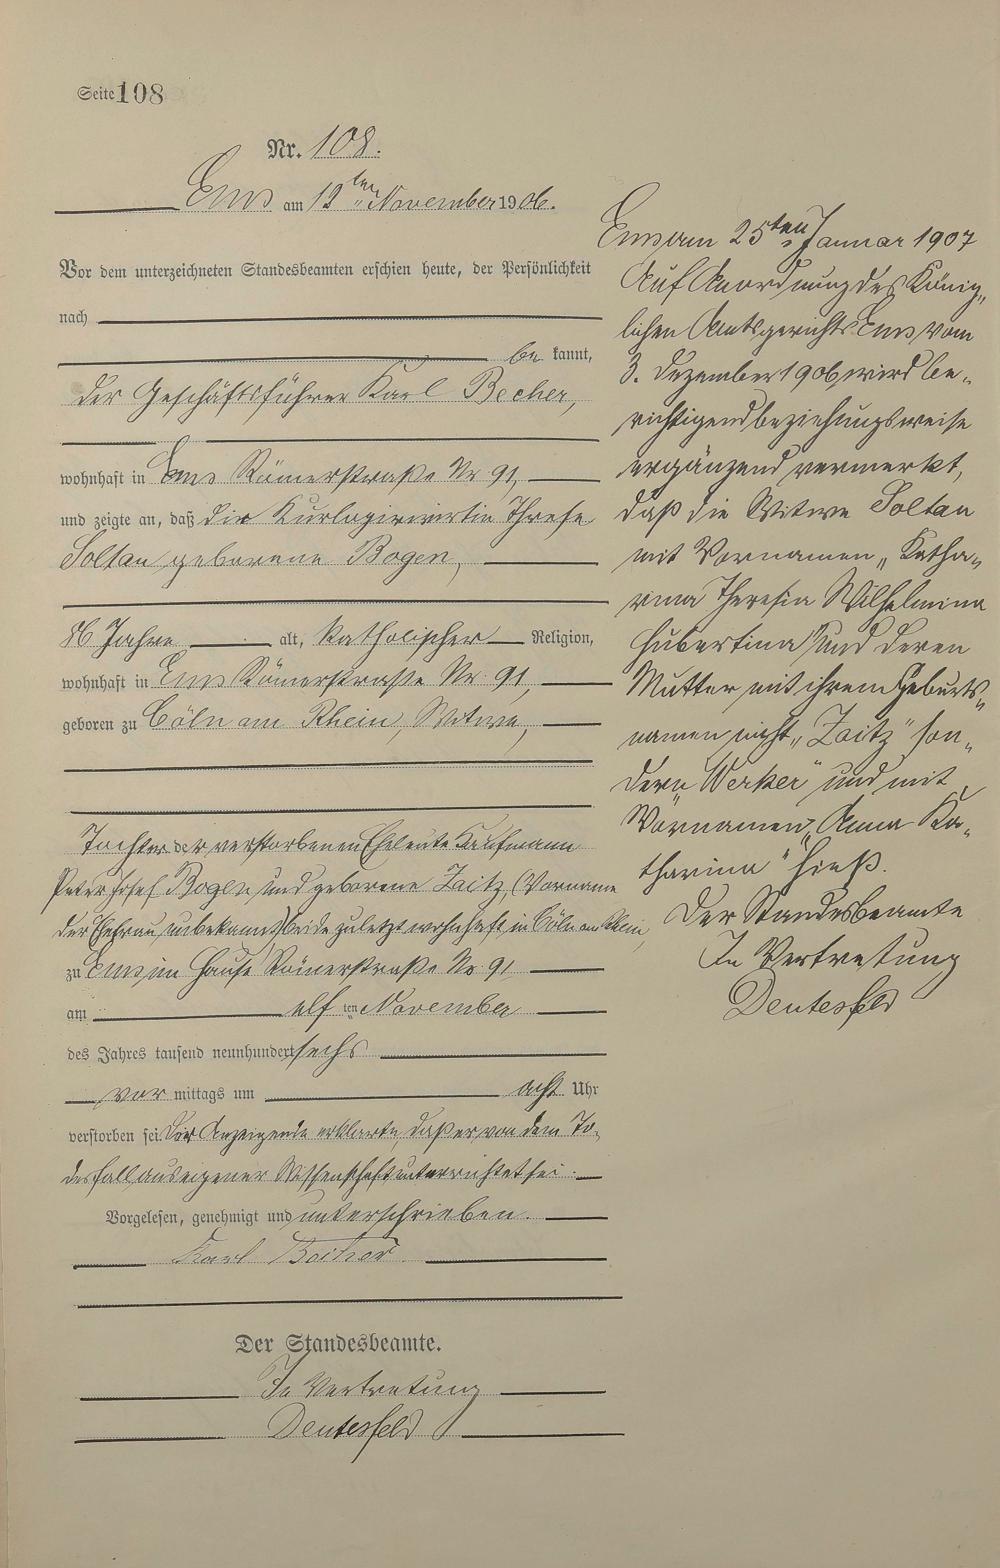 Seite 108
Nr. 108.
Ems am 12ten November 1906.
Vor dem unterzeichneten Standesbeamten erschien heute, der Persönlichkeit
nach
be kannt,
der Geschäftsführer Karl Becher,
wohnhaft in Ems Römerstraße Nr 91,
und zeigte an, daß die Kurlogirwirtin Threse
Soltan geborene Bogen,
86 Jahre alt, katholischer Religion,
wohnhaft in Ems Römerstrasse Nr 91,
geboren zu Cöln am Rhein, Witwe,
Tochter der verstorbenen Eheleute Kaufmann
Peter Josef Bogen und geborene Zaitz, (Vorname
der Ehefrau unbekannt) beide zuletzt wohnhaft in Cöln am Rhein,
zu Ems im Hause Römerstraße No 91
am elf ten November
des Jahres tausend neunhundert sechs
vor mittags um acht Uhr
verstorben sei. Der Anzeigende erklärte, daß er von dem To-
desfall aus eigener Wissenschaft unterrichtet sei.
Vorgelesen, genehmigt und unterschrieben.
Karl Becher
Der Standesbeamte.
In Vertretung
Deutesfeld
Ems am 25ten Januar 1907
Auf Anordnung des König„
lichen Amtsgerichts Ems vom
3. Dezember 1906, wird be„
richtigend beziehungsweise
ergänzend vermerkt,
daß die Witwe Soltan
mit Vornamen „Katha„
rina Theresia Wilhelmina
Hubertina" und deren
Mutter mit ihrem Geburts„
namen nicht „Zaitz" son„
dern „Werker" und mit
Vornamen „Anna Ka„
tharina" hieß.
Der Standesbeamte
In Vertretung
Deutesfeld